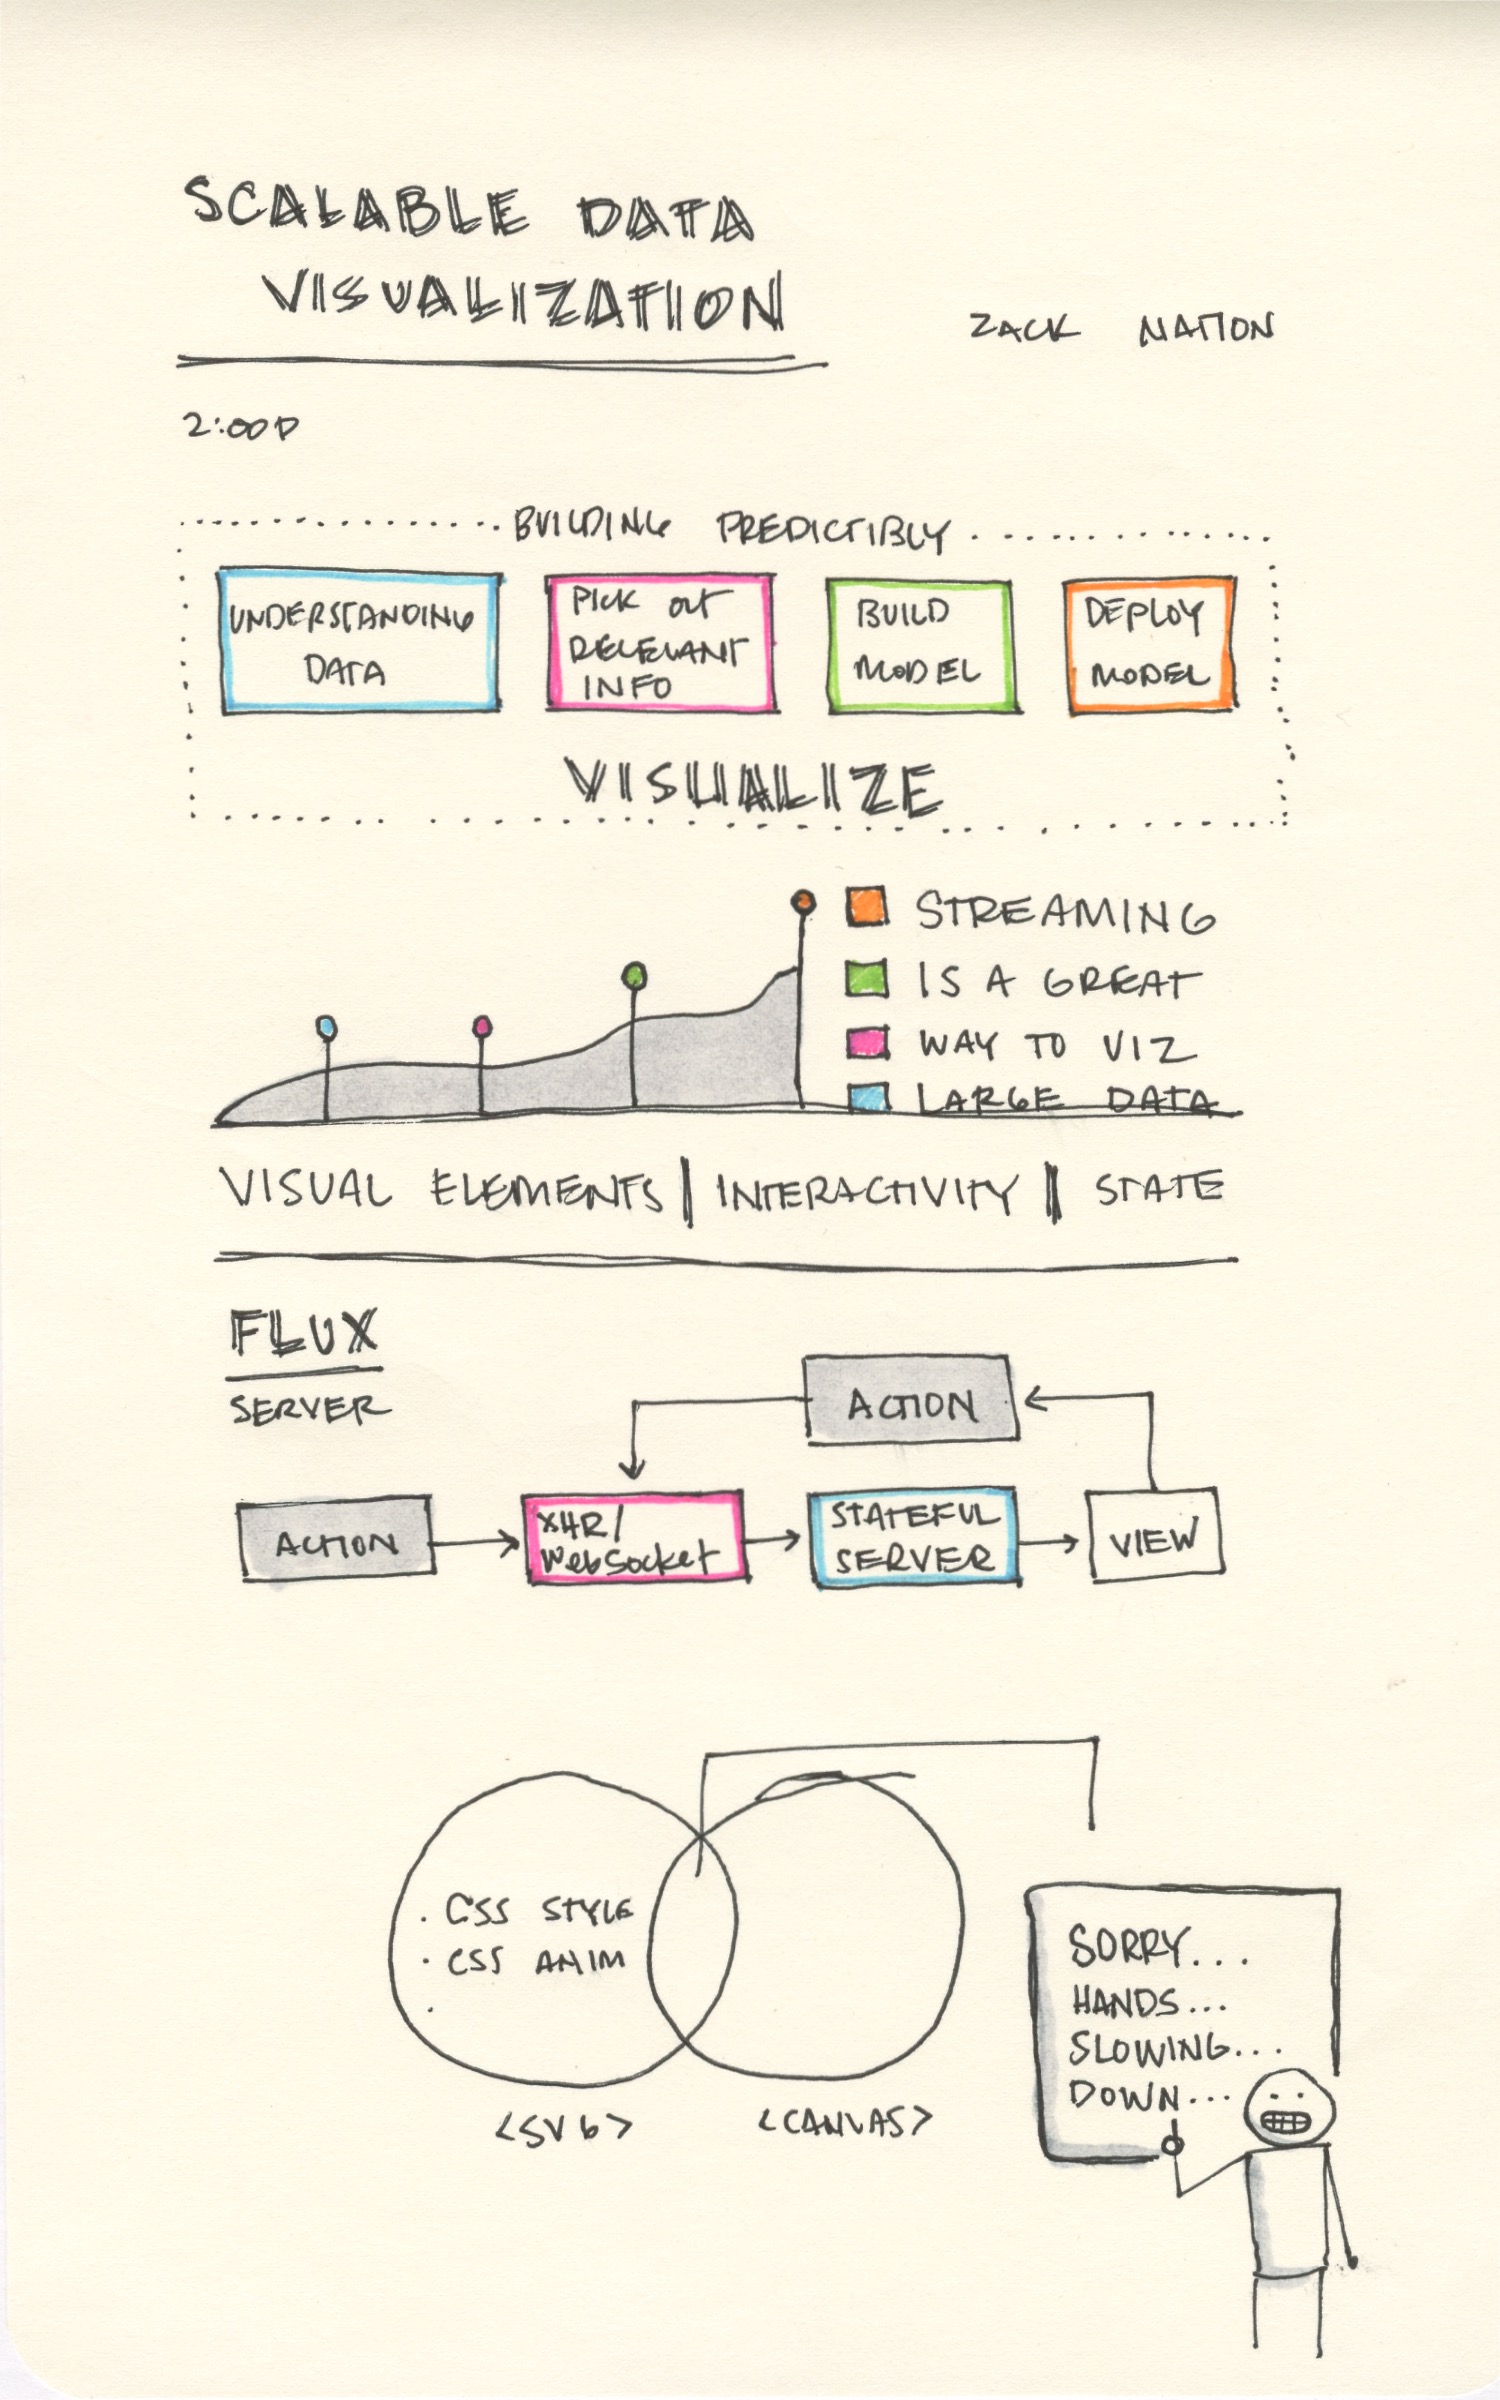 SCALABLE DATA
VISUALIZATION
ZACK NATION
2:00P
BUILDING PREDICTIBLY
UNDERSTANDING
DATA
PICK OUT
RELEVANT
INFO
BUILD
MODEL
DEPLOY
MODEL
VISUALIZE
STREAMING
IS A GREAT
WAY TO VIZ
LARGE DATA
VISUAL ELEMENTS | INTERACTIVITY | STATE
FLUX
SERVER
ACTION
ACTION
XHR/
WebSocket
STATEFUL
SERVER
VIEW
. CSS STYLE
. CSS ANIM
.
<SVG>
<CANVAS>
SORRY...
HANDS...
SLOWING...
DOWN...